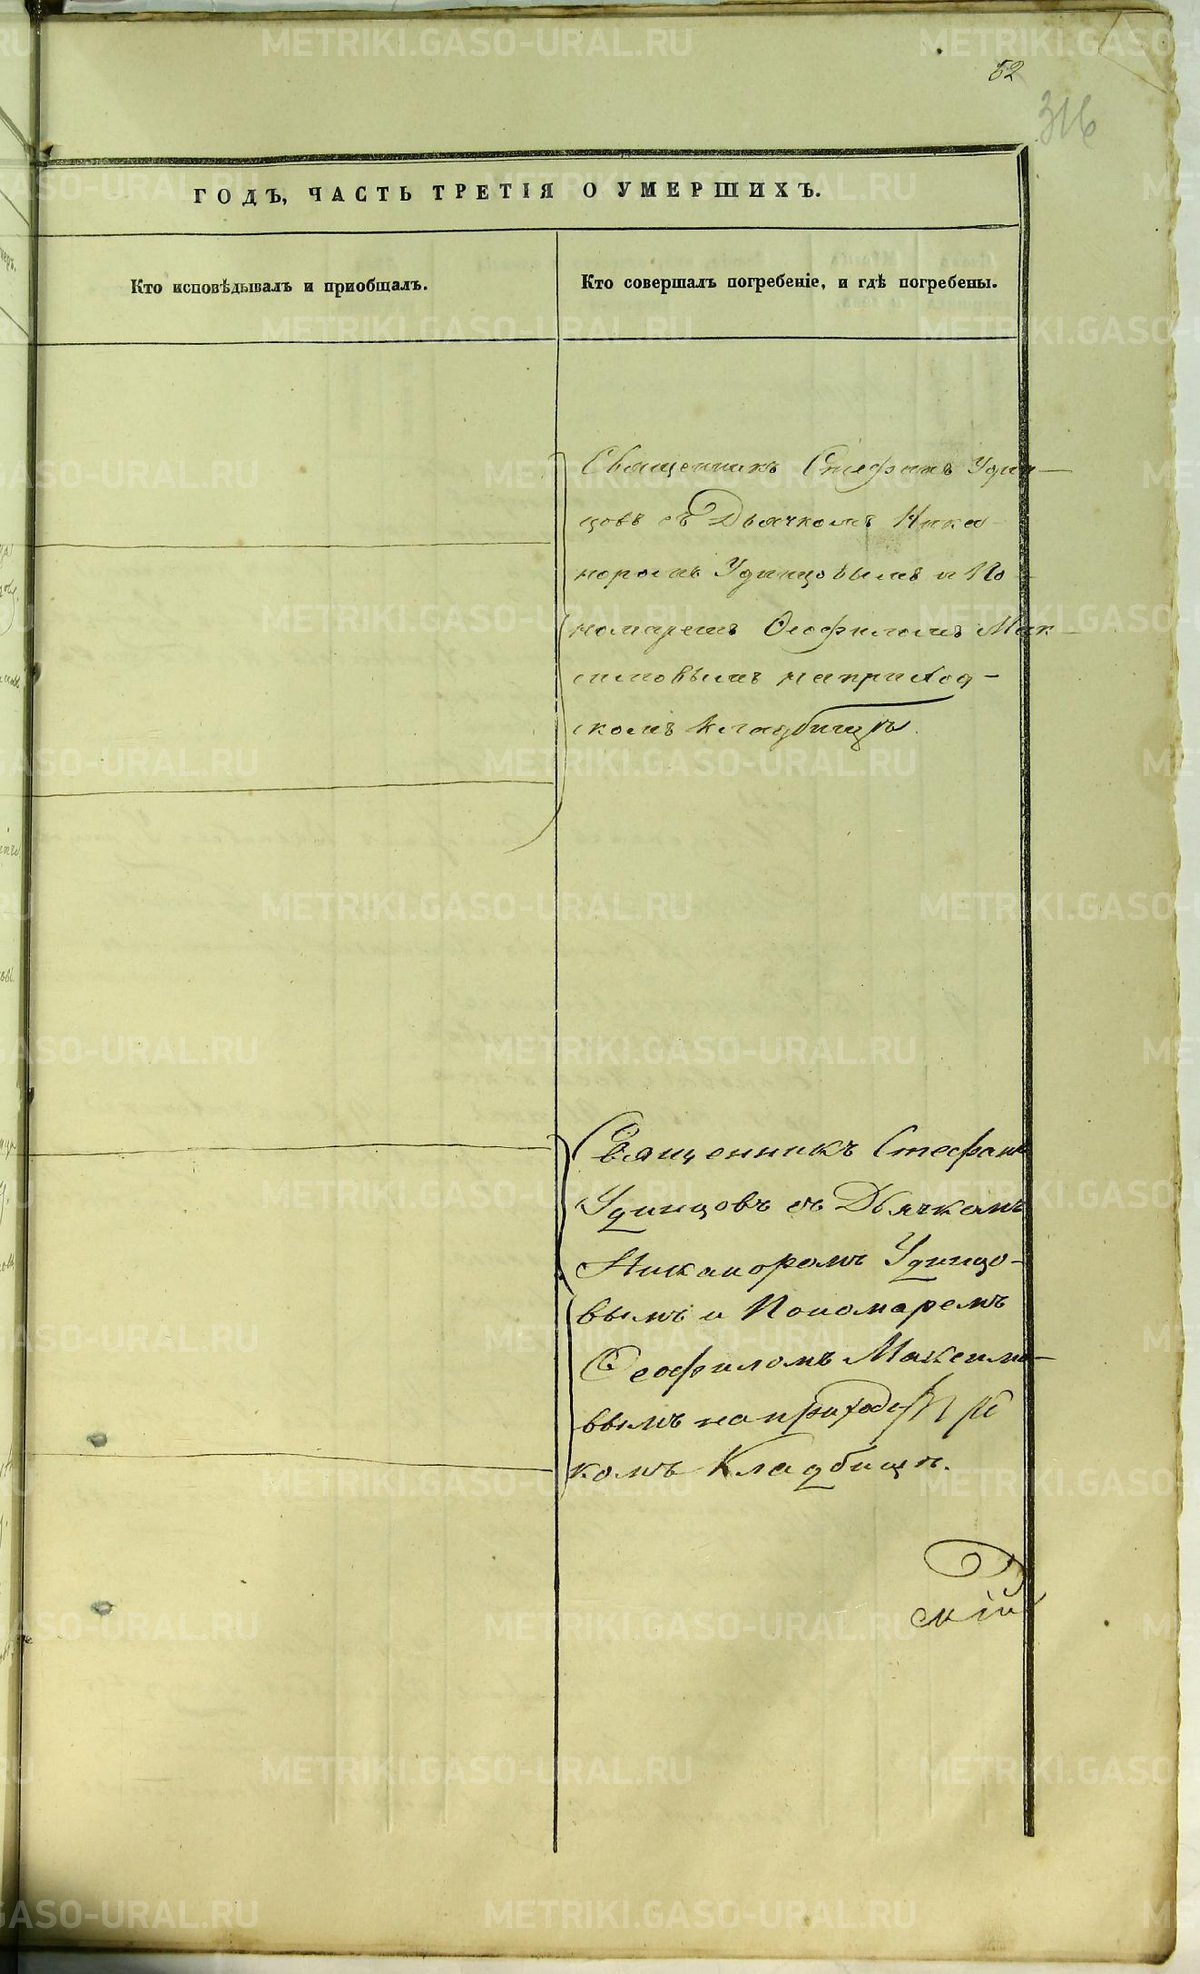 52
316
ГОДЪ, ЧАСТЬ ТРЕТІЯ О УМЕРШИХЪ.
Кто исповѣдывалъ и приобщалъ.
Кто совершалъ погребеніе, и гдѣ погребены.
Священникъ Стефанъ Удин-
цовъ съ Дьячкомъ Ника-
норомъ Удинцовымъ и По-
номаремъ Ѳеофиломъ Мак-
симовымъ на приход-
скомъ кладбищѣ.
Священникъ Стефанъ
Удинцовъ съ Дьячкомъ
Никаноромъ Удинцо-
вымъ и Пономаремъ
Ѳеофиломъ Максимо-
вымъ на приходс
комъ Кладбищѣ.
скій
METRIKI.GASO-URAL.RU